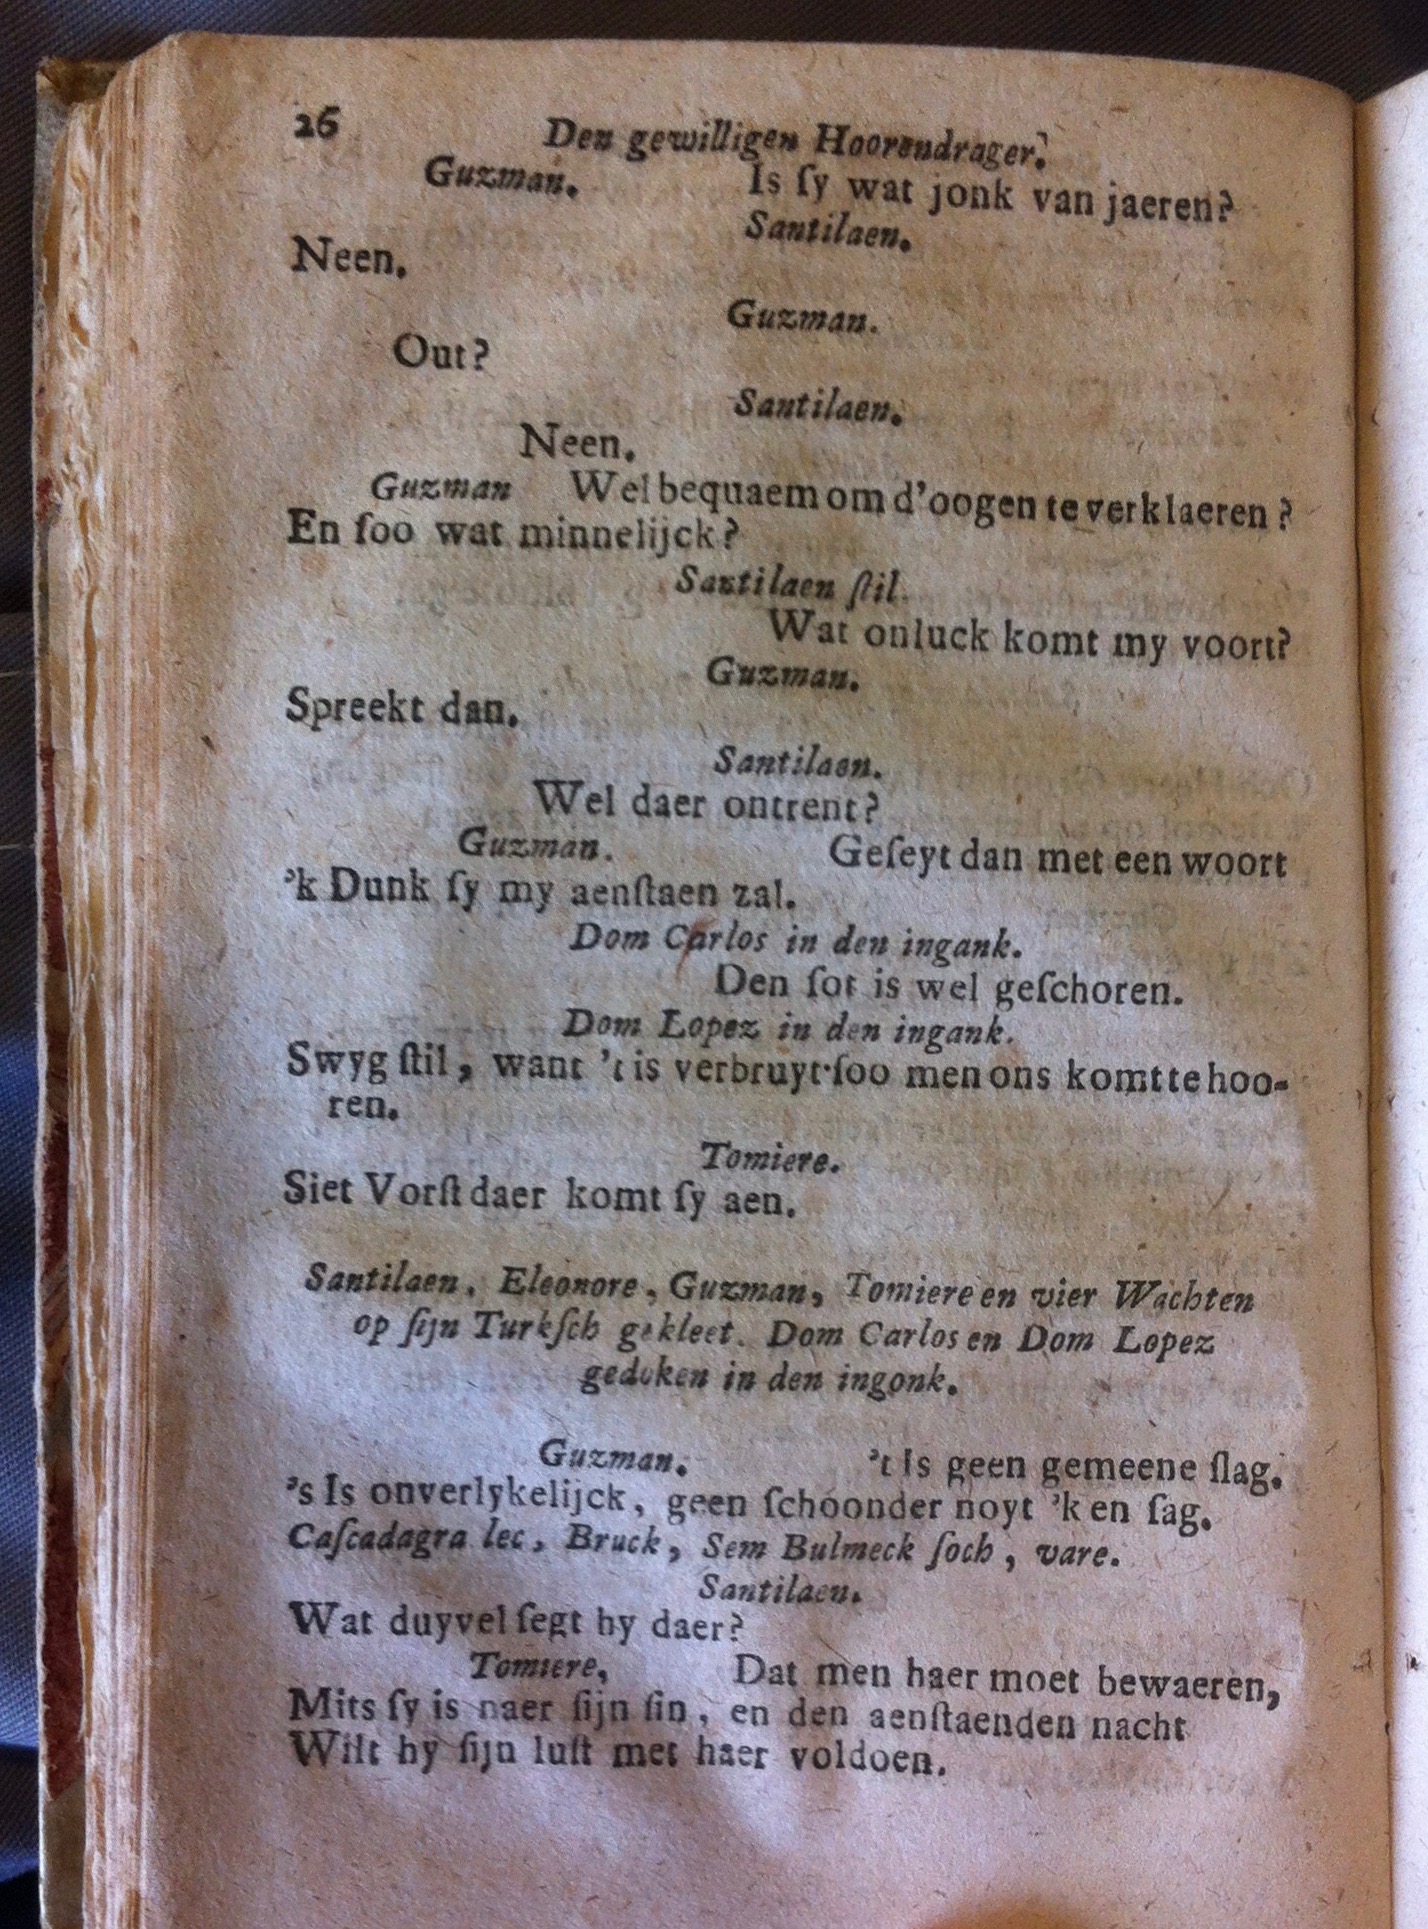 26 Den gewilligen Hoorendrager.
Guzman. Is ſy wat jonk van jaeren?
Santilaen.
Neen.
Guzman.
Out?
Santilaen.
Neen.
Guzman Wel bequaem om d'oogen te verklaeren?
En ſoo wat minnelijck?
Santilaen ſtil.
Wat onluck komt my voort?
Guzman.
Spreekt dan.
Santilaen.
Wel daer ontrent?
Guzman. Geſeyt dan met een woort
'k Dunk ſy my aenſtaen zal.
Dom Carlos in den ingank.
Den ſot is wel geſchoren.
Dom Lopez in den ingank.
Swyg ſtil, want 't is verbruyt ſoo men ons komt te hoo-
ren.
Tomiere.
Siet Vorſt daer komt ſy aen.
Santilaen, Eleonore, Guzman, Tomiere en vier Wachten
op ſijn Turkſch gekleet. Dom Carlos en Dom Lopez
gedoken in den ingonk.
Guzman. 't Is geen gemeene ſlag.
's Is onverlykelijck, geen ſchoonder noyt 'k en ſag.
Caſcadagra lec, Bruck, Sem Bulmeck ſoch, vare.
Santilaen.
Wat duyvel ſegt hy daer?
Tomiere, Dat men haer moet bewaeren,
Mits ſy is naer ſijn ſin, en den aenſtaenden nacht
Wilt hy ſijn luſt met haer voldoen.